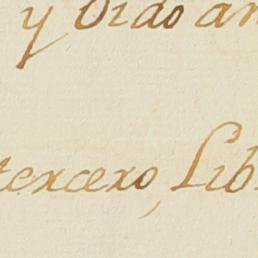 y Oido an
tercero, Lib